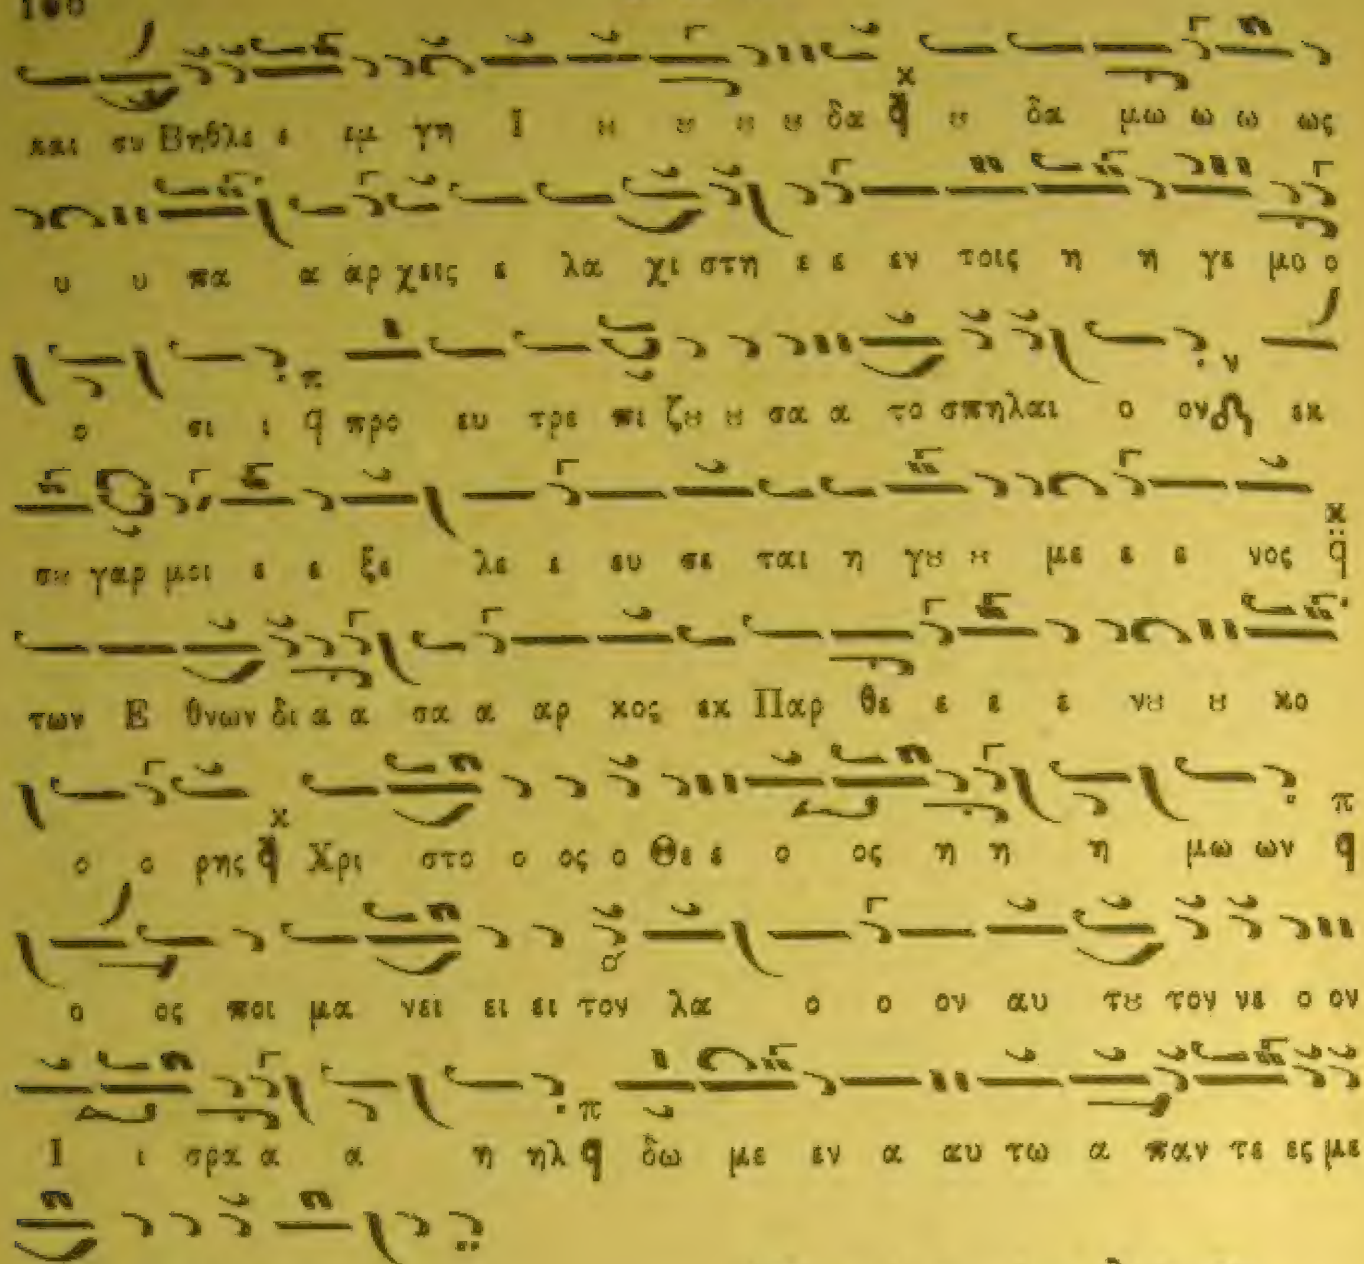 και συ Βηθλε ε εμ γη Ι ȣ ȣ ȣ ȣ δα ȣ δα μω ω ω ως
υ υ πα α αρ χεις ε λα χι στη ε ε εν τοις η η γε μο ο
ο σι ι π προ ευ τρε πι ζȣ ȣ σα α το σπηλαι ο ον ν εκ
σȣ γαρ μοι ε ε ξε λε ε ευ σε ται η γȣ ȣ με ε ε νος
των Ε θνων δι α α σα α αρ κος εκ Παρ θε ε ε ε νȣ ȣ κο
ο ο ρης Χρι στο ο ος ο Θε ε ο ος η η η μω ων π
ο ος ποι μα νει ει ει τον λα ο ο ον αυ τȣ τον νε ο ον
Ι ι σρα α α η ηλ π δω με εν α αυ τω α παν τε ες με